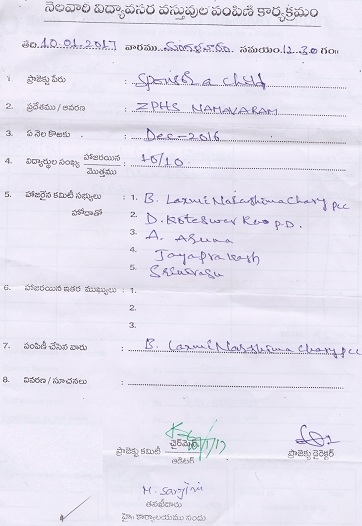 నెలవారి విద్యావసర వస్తువుల పంపిణి కార్యక్రమం
తేది.10.01.2017 వారము మంగళవారం సమయం.12.30గం॥
1. ప్రాజెక్టు పేరు : Sponsor a child
2. ప్రదేశము / ఆవరణ : ZPHS NAMAVARAM
3. ఏ నెల కొఱకు : Dec-2016
4. విద్యార్థుల సంఖ్య హాజరయిన / మొత్తము : 10/10
5. హాజరైన కమిటి సభ్యులు : 1. B. Laxmi Narashima Chary PCC
హోదాతో 2. D. Koteswar Rao P.D.
3. A. Aruna
4. Jayaprakash
5. Srinivasu
6. హాజరయిన ఇతర ముఖ్యులు : 1.
2.
3.
7. పంపిణీ చేసిన వారు : B. Laxmi Narashima Chary PCC
8. వివరణ / సూచనలు :
ప్రాజెక్టు కమిటీ చైర్మెన్ ప్రాజెక్టు డైరెక్టర్
ఆడిటర్
M. Sarojini
తనఖీదారు
హై॥ కార్యాలయము నందు